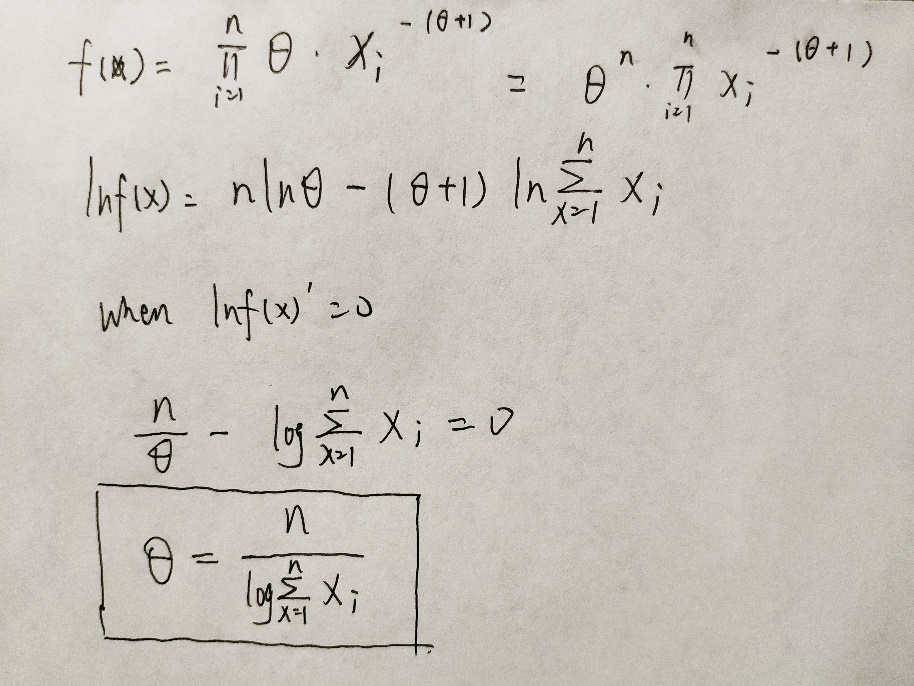 f(x) = ∏_{i=1}^{n} θ · x_i^{-(θ+1)} = θ^n · ∏_{i=1}^{n} x_i^{-(θ+1)}
lnf(x) = n lnθ - (θ+1) ln ∑_{x=1}^{n} x_i
when lnf(x)' = 0
n/θ - log ∑_{x=1}^{n} x_i = 0
θ = n / (log ∑_{x=1}^{n} x_i)